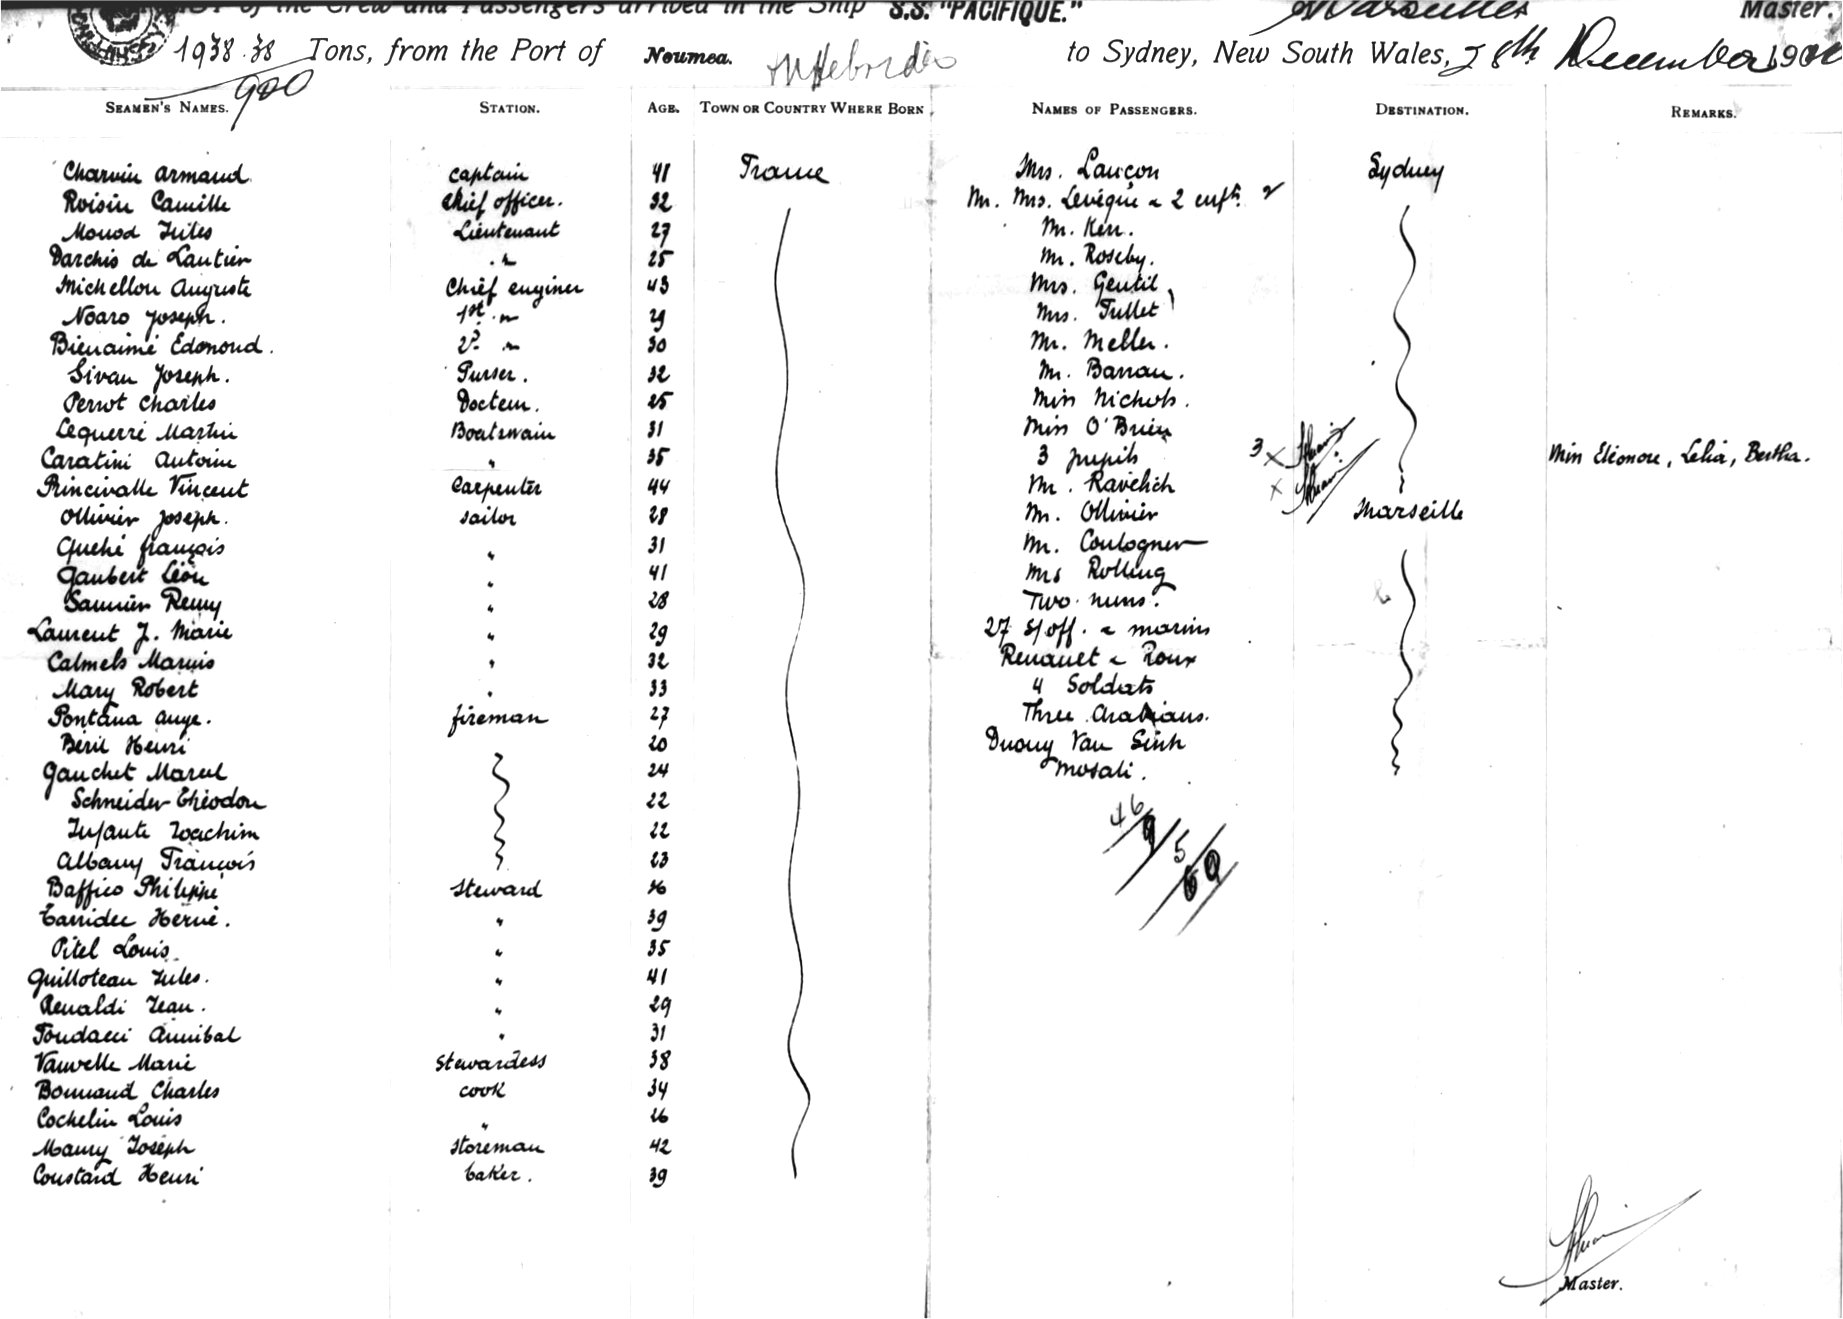 of the Crew and Passengers arrived in the Ship S.S. "PACIFIQUE." Marseilles Master.
1938.38 Tons, from the Port of Noumea. N Hebrides to Sydney, New South Wales, 28th December 190
920
SEAMEN'S NAMES. STATION. AGE. TOWN OR COUNTRY WHERE BORN NAMES OF PASSENGERS. DESTINATION. REMARKS.
Charvin Armand captain 41 France Mrs. Lançon Sydney
Roisin Camille chief officer. 32 Mr. Mrs. Levêque & 2 enfts. 2
Monod Jules Lieutenant 27 Mr. Kerr.
Darchis de Lautier " 25 Mr. Roseby.
Michellon Auguste Chief enginer 43 Mrs. Gentil
Noaro Joseph. 1st " 29 Mrs. Tullet
Bienaimé Edmond. 2d " 30 Mr. Meller.
Sivan Joseph. Purser. 32 Mr. Barrau.
Perrot Charles Docteur. 25 Miss Nichols.
Lequerré Martin Boatswain 31 Miss O'Brien
Caratini Antoine " 35 3 pupils 3 x Miss Eléonore, Lelia, Bertha.
Princivalle Vincent Carpenter 44 Mr. Ravelich x
Ollivier Joseph. sailor 28 Mr. Ollivier Marseille
Quéhé françois " 31 Mr. Coulogner
Gaubert Léon " 41 Mrs Rolling
Saunier Remy " 28 Two nuns.
Laurent J. Marie " 29 27 s/off. & marins
Calmels Marius " 32 Renault & Roux
Mary Robert " 33 4 Soldats
Pontana Ange. fireman 27 Three Arabians.
Béril Henri 20 Duong Van Sinh
Gauchet Marcel 24 Mosali.
Schneider Théodore 22
Infante Joachim 22 46
Albany François 23 9 5
Baffico Philippe steward 26 60
Tarridec Hervé. " 39
Pitel Louis " 35
Guilloteau Jules. " 41
Renaldi Jean. " 29
Fondacci Annibal " 31
Vauvelle Marie Stewardess 38
Bonnaud Charles cook 34
Cochelin Louis " 26
Maury Joseph Storeman 42
Coustard Henri baker. 39
Master.